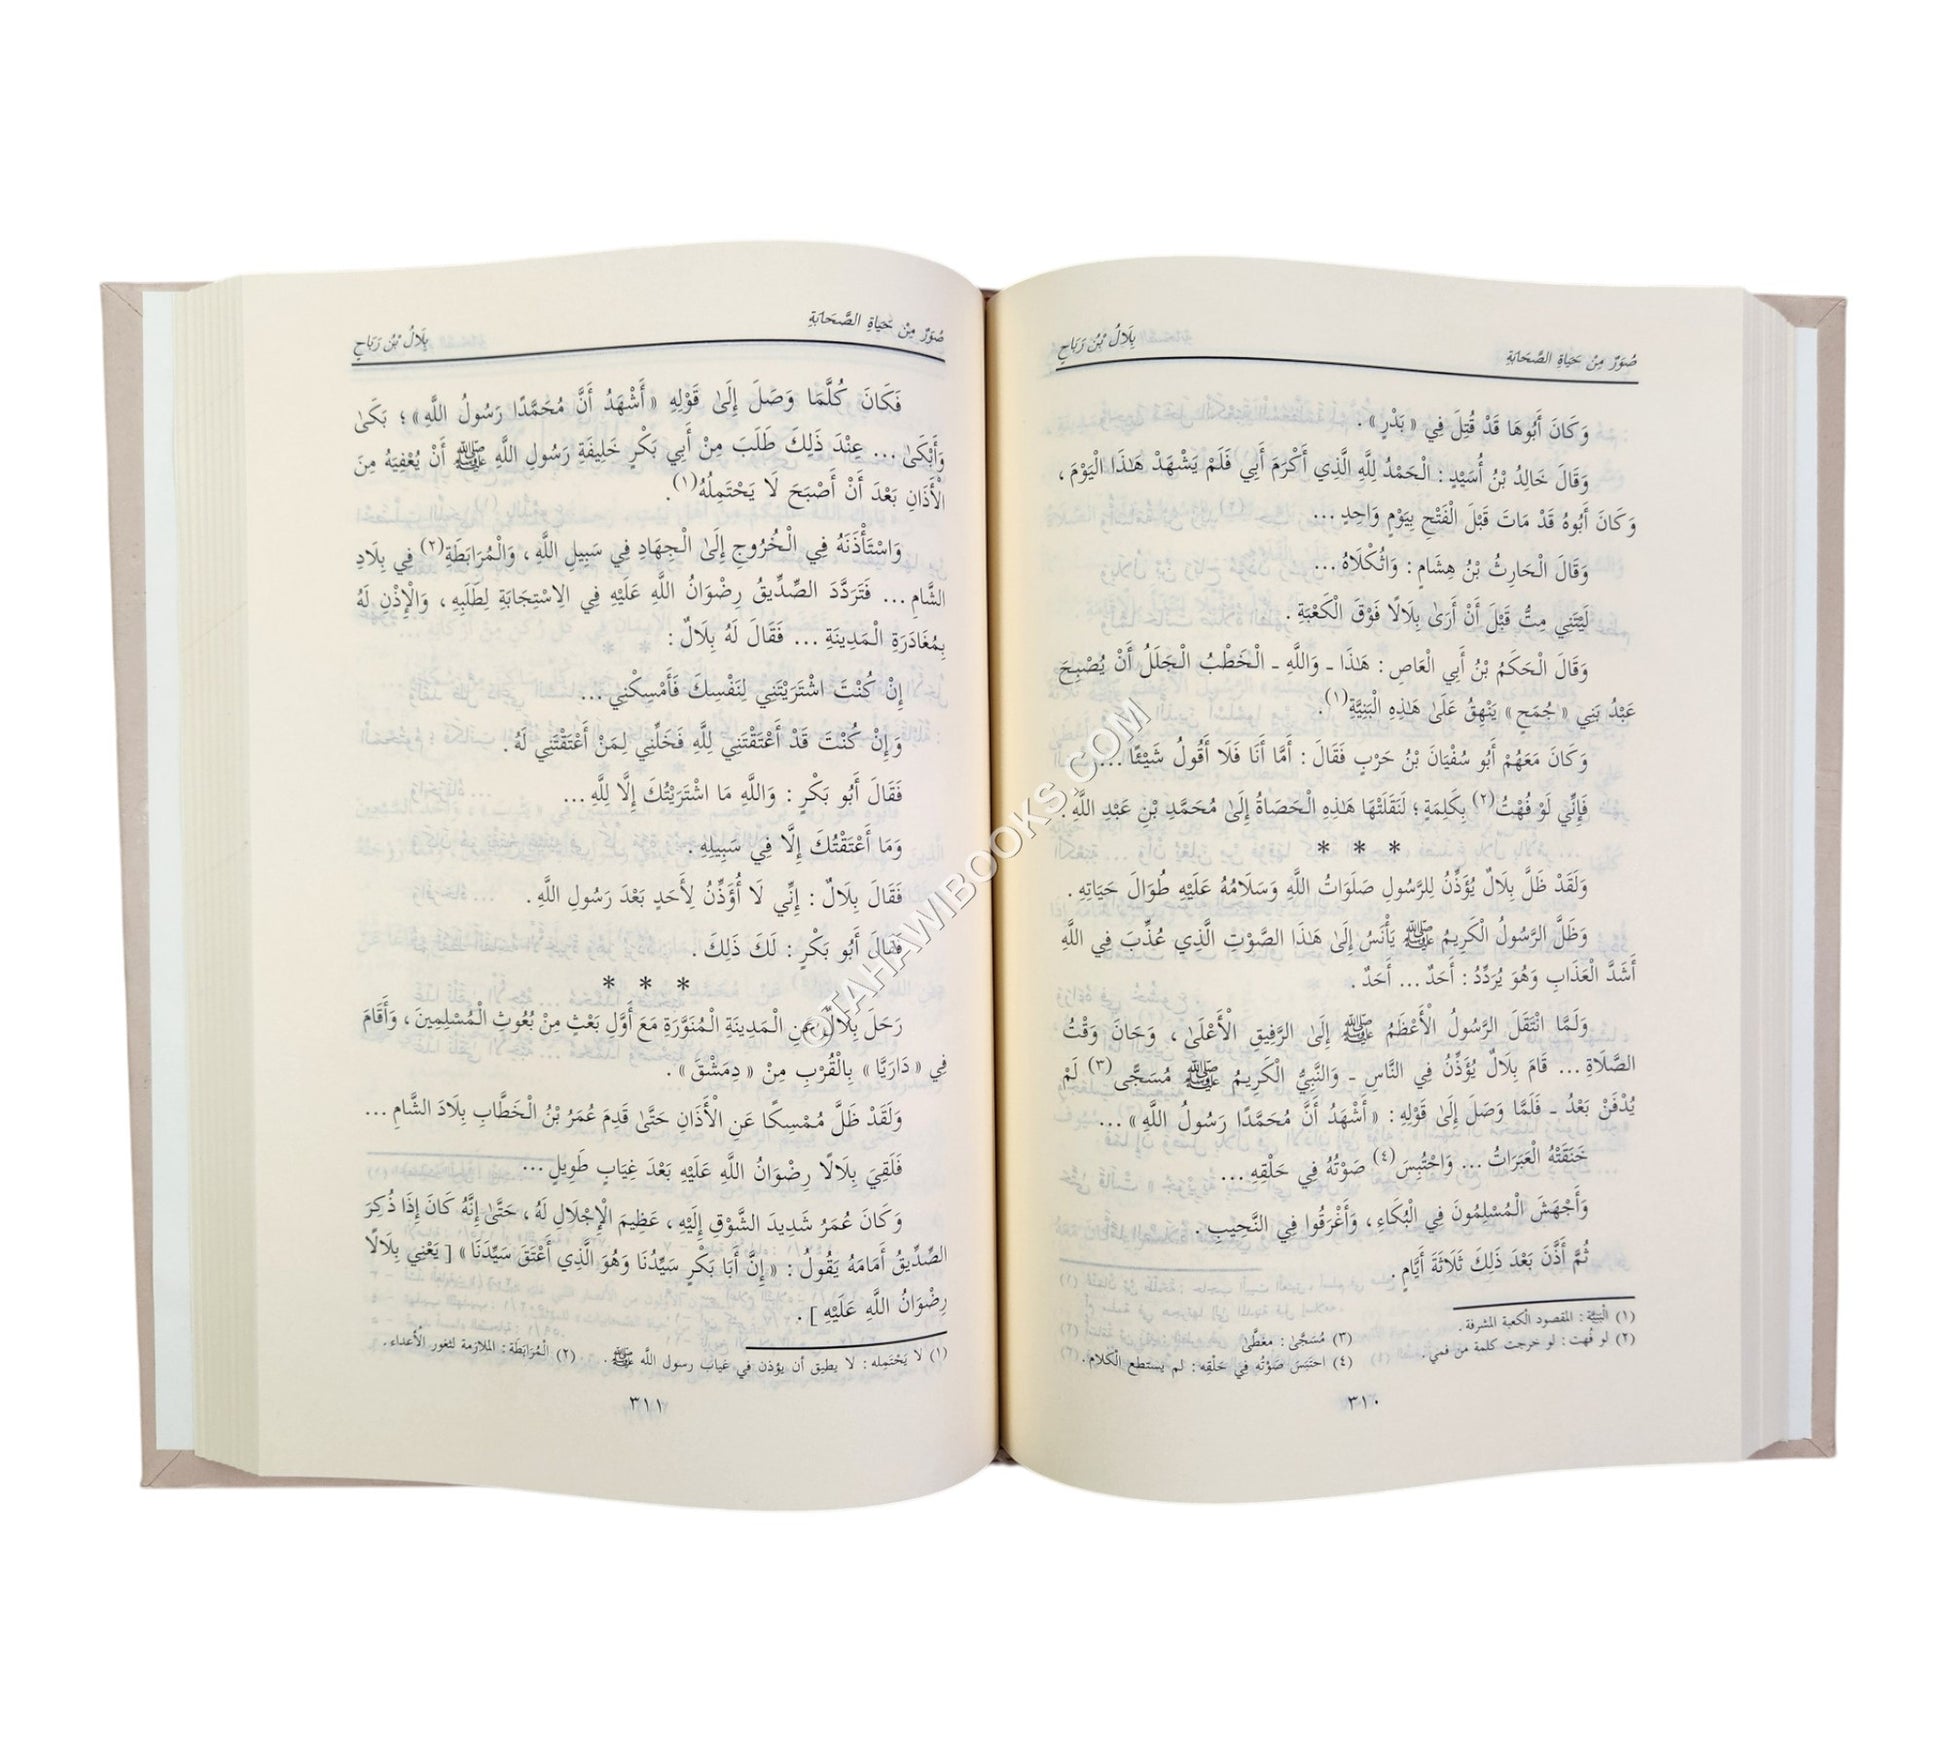 صُوَرٌ مِنْ حَيَاةِ الصَّحَابَةِ
بِلَالُ بْنُ رَبَاحٍ
وَكَانَ أَبُوهَا قَدْ قُتِلَ فِي « بَدْرٍ » .
وَقَالَ خَالِدُ بْنُ أُسَيْدٍ : الْحَمْدُ لِلَّهِ الَّذِي أَكْرَمَ أَبِي فَلَمْ يَشْهَدْ هَٰذَا الْيَوْمَ ،
وَكَانَ أَبُوهُ قَدْ مَاتَ قَبْلَ الْفَتْحِ بِيَوْمٍ وَاحِدٍ ...
وَقَالَ الْحَارِثُ بْنُ هِشَامٍ : وَاثُكْلَاهُ ...
لَيْتَنِي مِتُّ قَبْلَ أَنْ أَرَىٰ بِلَالًا فَوْقَ الْكَعْبَةِ .
وَقَالَ الْحَكَمُ بْنُ أَبِي الْعَاصِ : هَٰذَا ـ وَاللَّهِ ـ الْخَطْبُ الْجَلَلُ أَنْ يُصْبِحَ
عَبْدُ بَنِي « جُمَحٍ » يَنْهِقُ عَلَىٰ هَٰذِهِ الْبَنِيَّةِ(١) .
وَكَانَ مَعَهُمْ أَبُو سُفْيَانَ بْنُ حَرْبٍ فَقَالَ : أَمَّا أَنَا فَلَا أَقُولُ شَيْئًا ...
فَإِنِّي لَوْ فُهْتُ(٢) بِكَلِمَةٍ ؛ لَنَقَلَتْهَا هَٰذِهِ الْحَصَاةُ إِلَىٰ مُحَمَّدِ بْنِ عَبْدِ اللَّهِ .
* * *
وَلَقَدْ ظَلَّ بِلَالٌ يُؤَذِّنُ لِلرَّسُولِ صَلَوَاتُ اللَّهِ وَسَلَامُهُ عَلَيْهِ طُوَالَ حَيَاتِهِ .
وَظَلَّ الرَّسُولُ الْكَرِيمُ ﷺ يَأْنَسُ إِلَىٰ هَٰذَا الصَّوْتِ الَّذِي عُذِّبَ فِي اللَّهِ
أَشَدَّ الْعَذَابِ وَهُوَ يُرَدِّدُ : أَحَدٌ ... أَحَدٌ .
وَلَمَّا انْتَقَلَ الرَّسُولُ الْأَعْظَمُ ﷺ إِلَىٰ الرَّفِيقِ الْأَعْلَىٰ ، وَحَانَ وَقْتُ
الصَّلَاةِ ... قَامَ بِلَالٌ يُؤَذِّنُ فِي النَّاسِ ـ وَالنَّبِيُّ الْكَرِيمُ ﷺ مُسَجًّى(٣) لَمْ
يُدْفَنْ بَعْدُ ـ فَلَمَّا وَصَلَ إِلَىٰ قَوْلِهِ : « أَشْهَدُ أَنَّ مُحَمَّدًا رَسُولُ اللَّهِ » ...
خَنَقَتْهُ الْعَبَرَاتُ ... وَاحْتُبِسَ(٤) صَوْتُهُ فِي حَلْقِهِ ...
وَأَجْهَشَ الْمُسْلِمُونَ فِي الْبُكَاءِ ، وَأَغْرَقُوا فِي النَّحِيبِ .
ثُمَّ أَذَّنَ بَعْدَ ذَلِكَ ثَلَاثَةَ أَيَّامٍ .
(١) الْبَنِيَّة : المقصود الكعبة المشرفة .
(٢) لو فُهت : لو خرجت كلمة من فمي .
(٣) مُسَجًّىٰ : مغطًّىٰ
(٤) احتبَسَ صَوْتُه فِي حَلْقِه : لم يستطع الْكلام .
٣١٠
صُوَرٌ مِنْ حَيَاةِ الصَّحَابَةِ
بِلَالُ بْنُ رَبَاحٍ
فَكَانَ كُلَّمَا وَصَلَ إِلَىٰ قَوْلِهِ « أَشْهَدُ أَنَّ مُحَمَّدًا رَسُولُ اللَّهِ » ؛ بَكَىٰ
وَأَبْكَىٰ ... عِنْدَ ذَلِكَ طَلَبَ مِنْ أَبِي بَكْرٍ خَلِيفَةِ رَسُولِ اللَّهِ ﷺ أَنْ يُعْفِيَهُ مِنَ
الْأَذَانِ بَعْدَ أَنْ أَصْبَحَ لَا يَحْتَمِلُهُ(١) .
وَاسْتَأْذَنَهُ فِي الْخُرُوجِ إِلَىٰ الْجِهَادِ فِي سَبِيلِ اللَّهِ ، وَالْمُرَابَطَةِ(٢) فِي بِلَادِ
الشَّامِ ... فَتَرَدَّدَ الصِّدِّيقُ رِضْوَانُ اللَّهِ عَلَيْهِ فِي الِاسْتِجَابَةِ لِطَلَبِهِ ، وَالْإِذْنِ لَهُ
بِمُغَادَرَةِ الْمَدِينَةِ ... فَقَالَ لَهُ بِلَالٌ :
إِنْ كُنْتَ اشْتَرَيْتَنِي لِنَفْسِكَ فَأَمْسِكْنِي ...
وَإِنْ كُنْتَ قَدْ أَعْتَقْتَنِي لِلَّهِ فَخَلِّنِي لِمَنْ أَعْتَقْتَنِي لَهُ .
فَقَالَ أَبُو بَكْرٍ : وَاللَّهِ مَا اشْتَرَيْتُكَ إِلَّا لِلَّهِ ...
وَمَا أَعْتَقْتُكَ إِلَّا فِي سَبِيلِهِ .
فَقَالَ بِلَالٌ : إِنِّي لَا أُؤَذِّنُ لِأَحَدٍ بَعْدَ رَسُولِ اللَّهِ .
فَقَالَ أَبُو بَكْرٍ : لَكَ ذَلِكَ .
* * *
رَحَلَ بِلَالٌ عَنِ الْمَدِينَةِ الْمُنَوَّرَةِ مَعَ أَوَّلِ بَعْثٍ مِنْ بُعُوثِ الْمُسْلِمِينَ ، وَأَقَامَ
فِي « دَارَيَّا » بِالْقُرْبِ مِنْ « دِمَشْقَ » .
وَلَقَدْ ظَلَّ مُمْسِكًا عَنِ الْأَذَانِ حَتَّىٰ قَدِمَ عُمَرُ بْنُ الْخَطَّابِ بِلَادَ الشَّامِ ...
فَلَقِيَ بِلَالًا رِضْوَانُ اللَّهِ عَلَيْهِ بَعْدَ غِيَابٍ طَوِيلٍ ...
وَكَانَ عُمَرُ شَدِيدَ الشَّوْقِ إِلَيْهِ ، عَظِيمَ الْإِجْلَالِ لَهُ ، حَتَّىٰ إِنَّهُ كَانَ إِذَا ذُكِرَ
الصِّدِّيقُ أَمَامَهُ يَقُولُ : « إِنَّ أَبَا بَكْرٍ سَيِّدُنَا وَهُوَ الَّذِي أَعْتَقَ سَيِّدَنَا » [ يَعْنِي بِلَالًا
رِضْوَانُ اللَّهِ عَلَيْهِ ] .
(١) لَا يَحْتَمِله : لا يطيق أن يؤذن في غياب رسول الله ﷺ . (٢) الْمُرَابَطَة : الملازمة لثغور الْأعداء .
٣١١
©TAHAWIBOOKS.COM